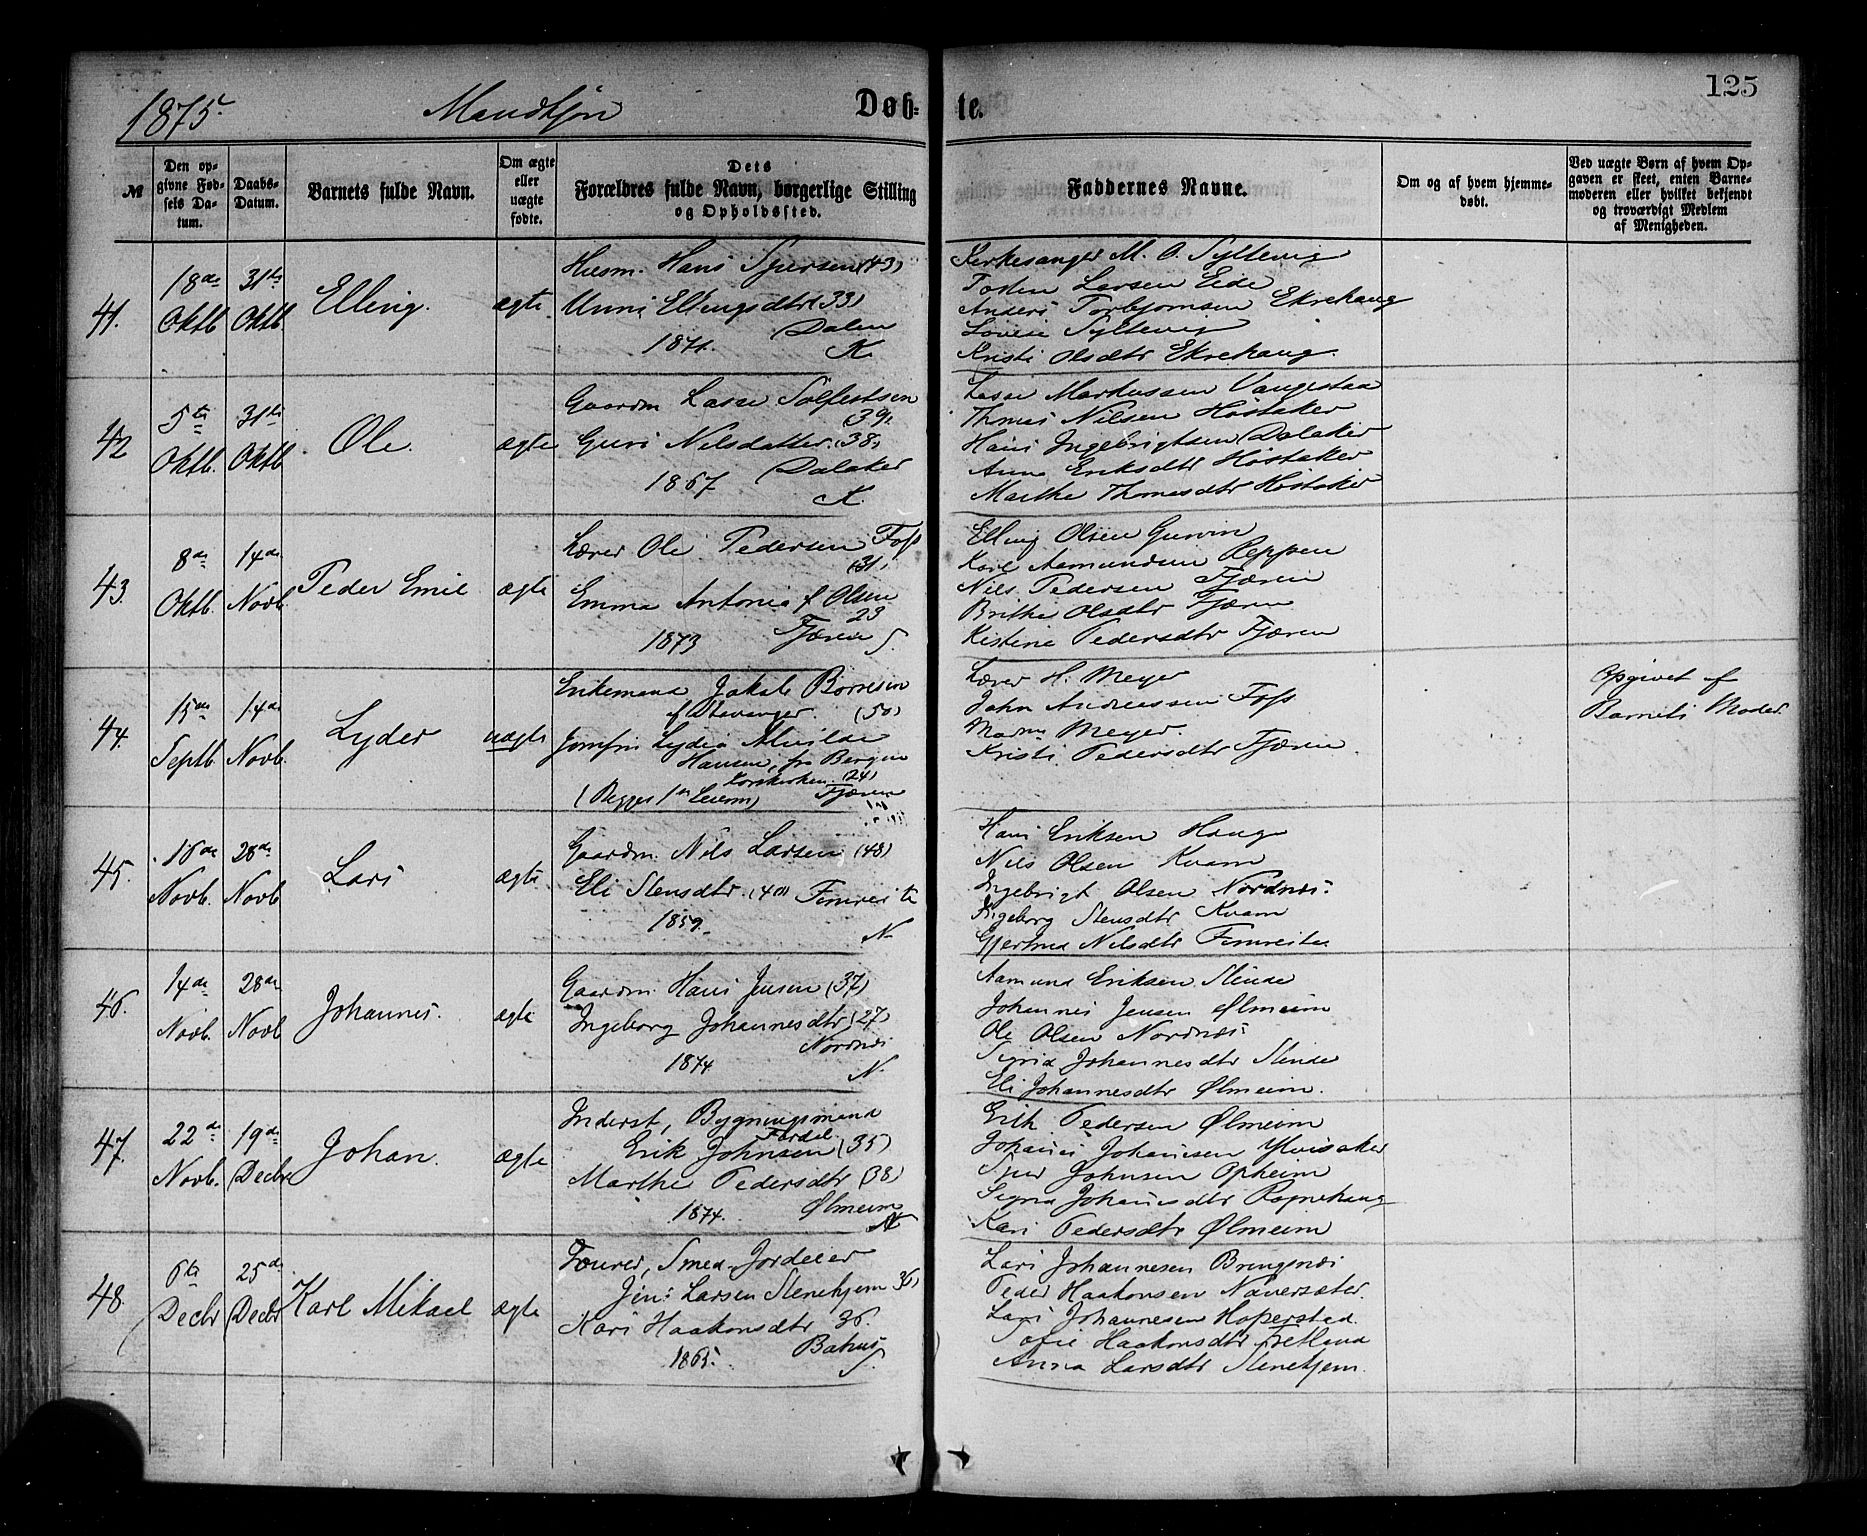 125
1875.
Mandkjøn
Døb-
te.
№
Den op-
givne Fød-
sels Da-
tum.
Daabs-
Datum.
Barnets fulde Navn.
Om ægte
eller
uægte
fødte.
Dets
Forældres fulde Navn, borgerlige Stilling
og Opholdssted.
Faddernes Navne.
Om og af hvem hjemme-
døbt.
Ved uægte Børn af hvem Op-
gaven er skeet, enten Barne-
moderen eller hvilket bekjendt
og troværdigt Medlem
af Menigheden.
41.
18de Oktb.
31te Oktb.
Elling.
ægte
Husm. Hans Sjursen (43)
Unni Ellingsdtr (33)
Dalen
1871.
K.
Kirkesanger M. O. Syltevig
Torsten Larsen Eide
Anders Torbjørnsen Ekrehaug
Lovise Syltevig
Kristi Olsdtr Ekrehaug.
42
5te Oktb.
31te Oktb
Ole.
ægte
Gaardm Lasse Solfestsen
(39)
Guri Nilsdatter (38)
Dalaker
1867
K.
Lasse Markussen Vangestad
Thomas Nilsen Høstaker
Hans Ingebrigtsen Dalaker
Anna Eriksdtr Høstaker
Marthe Thomasdtr Høstaker
43.
8de Oktb.
14de Novb.
Peder Emil
ægte
Lærer Ole Pedersen Foss
(31)
Emma Antonia f. Olsen
23
1873
Fjæren
S.
Elling Olsen Gurvin
Karl Aamundsen Reppen
Nils Pedersen Fjæren
Brithe Olsdtr Fjæren
Kistine Pedersdtr Fjæren
44.
15de Septb.
14de Novb.
Lyder
uægte
Enkemand Jakob Børresen
af Stavanger. (50)
Jomfru Lydia Alvilde
Hansen, fra Bergen
Korskirken (24)
(Begges 1ste Leierm) Fjæren
Lærer H. Meyer
John Andreassen Foss
Madm Meyer.
Kristi Pedersdtr Fjæren.
Opgivet af
Barnets Moder
45.
16de Novb.
28de Novb
Lars
ægte
Gaardm. Nils Larsen (48)
Eli Stensdtr (40) Fimreite
1859.
N
Hans Eriksen Hauge
Nils Olsen Kvam
Ingebrigt Olsen Nordnæs.
Ingeborg Stensdtr Kvam
Gjertrud Nilsdtr Fimreite
46.
14de Novb.
28de Novb
Johannes.
ægte
Gaardm. Hans Jensen (37)
Ingeborg Johannesdtr (27)
Nordnæs
1874
N
Aamund Eriksen Slinde
Johannes Jensen Ølmeim
Ole Olsen Nordnæs
Sigrid Johannesdtr Slinde
Eli Johannesdtr Ølmeim.
47.
22de Novb.
19de Decbr
Johan.
ægte
Inderst, Bygningsmand
Fardal
Erik Johnsen (35)
Marthe Pedersdtr (38)
1874.
Ølmeim
N
Erik Pedersen Ølmeim
Johannes Johannesen Ylvisaker
Sjur Johnsen Opheim
Sigrid Johannesdtr Ragnehaug
Kari Pedersdtr Ølmeim
48.
6te Decbr
25de Decbr
Karl Mikael
ægte
Fourer, Smed, Jordeier
Jens Larsen Stenehjem 36)
Kari Haakonsdtr 36.
1865.
S.
Lars Johannesen Bringsnæs
Peder Haakonsen Navarsæter.
Lars Johannesen Hoperstad
Sofie Haakonsdtr Fretland
Anna Larsdtr Stenehjem.